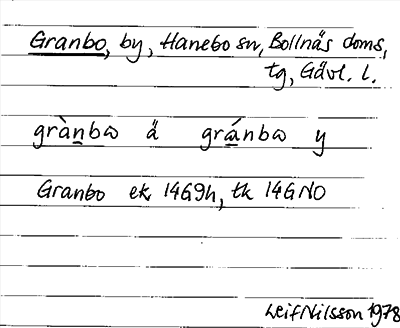 Granbo, by, Hanebo sn, Bollnäs doms,
tg, Gävl. l.
grànbω ä gránbω y
Granbo ek 14G9h, tk 14GNO
Leif Nilsson 1978